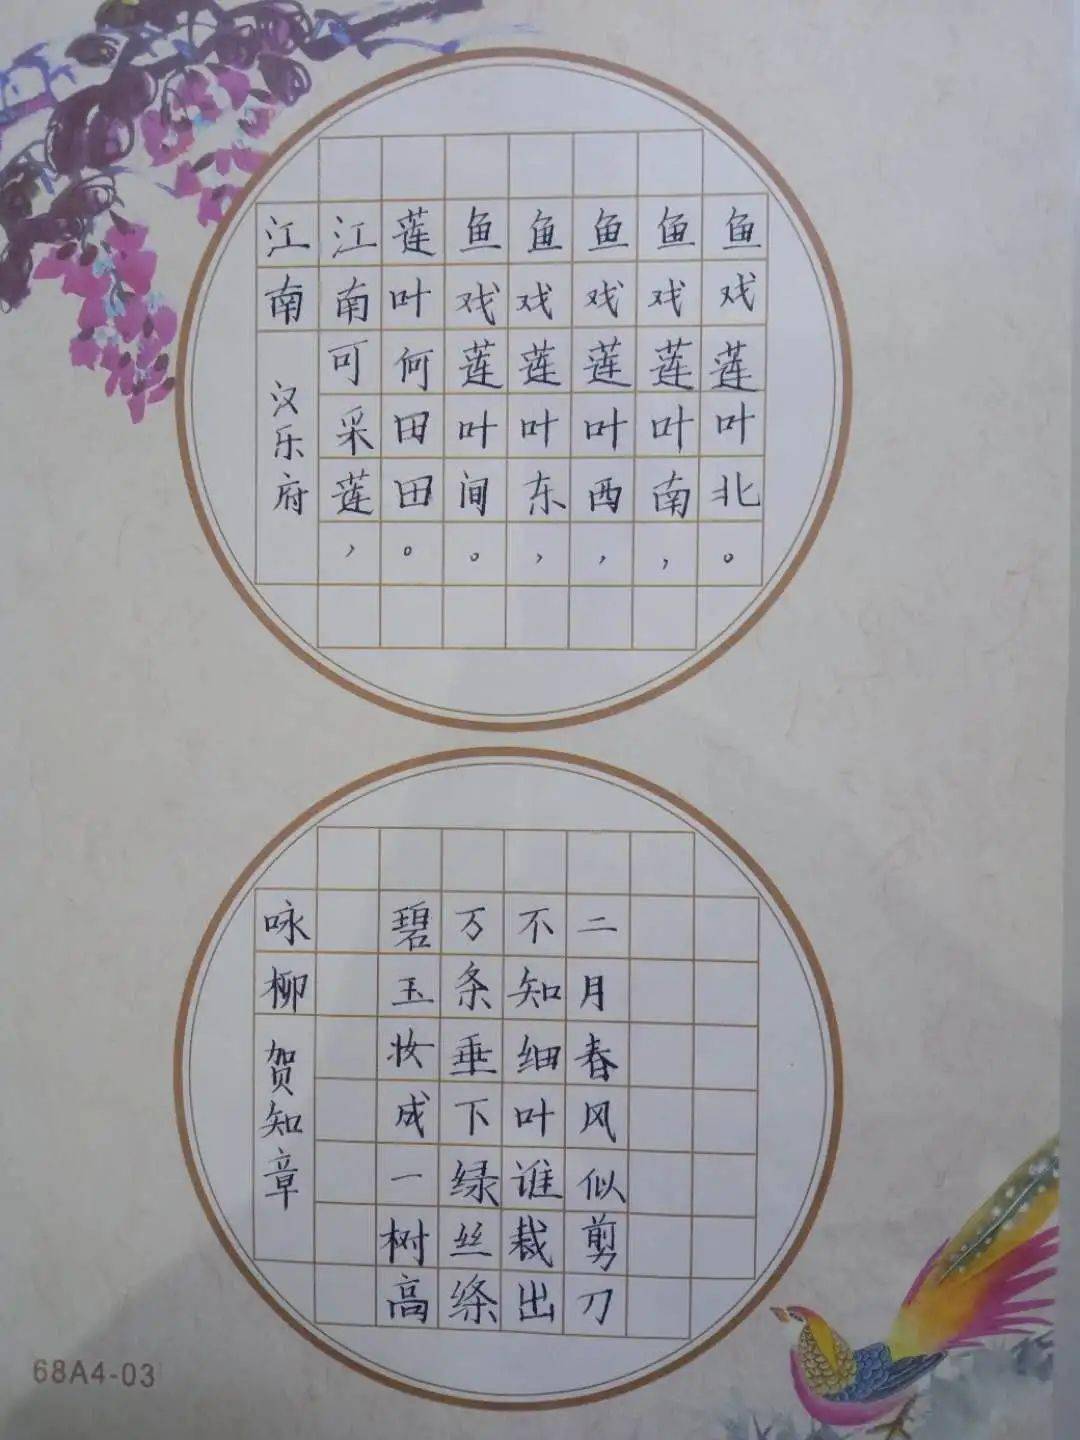 江南
汉乐府
江南可采莲，
莲叶何田田。
鱼戏莲叶间。
鱼戏莲叶东，
鱼戏莲叶西，
鱼戏莲叶南，
鱼戏莲叶北。
咏柳
贺知章
碧玉妆成一树高
万条垂下绿丝绦
不知细叶谁裁出
二月春风似剪刀
68A4-03